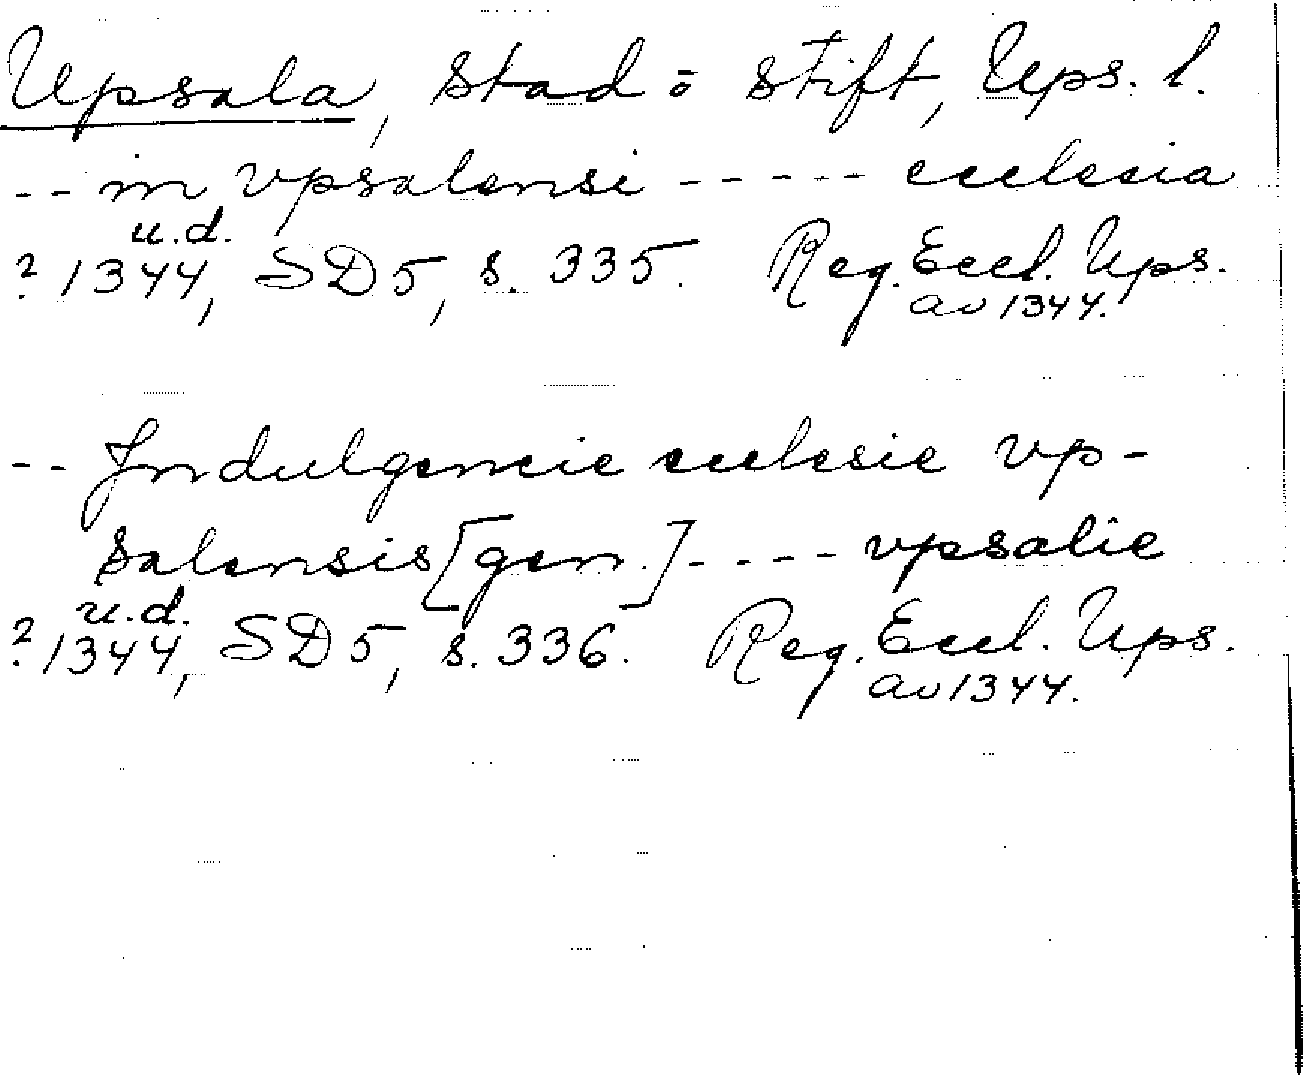 Upsala, stad o stift, Ups. l.
-- in vpsalensi ----- ecclesia
u.d.
? 1344, SD5, s. 335. Reg. Eccl. Ups.
av 1344.
-- Indulgencie ecclesie vp-
salensis [gen.] ---- vpsalie
u.d.
? 1344, SD5, s. 336. Reg. Eccl. Ups.
av 1344.